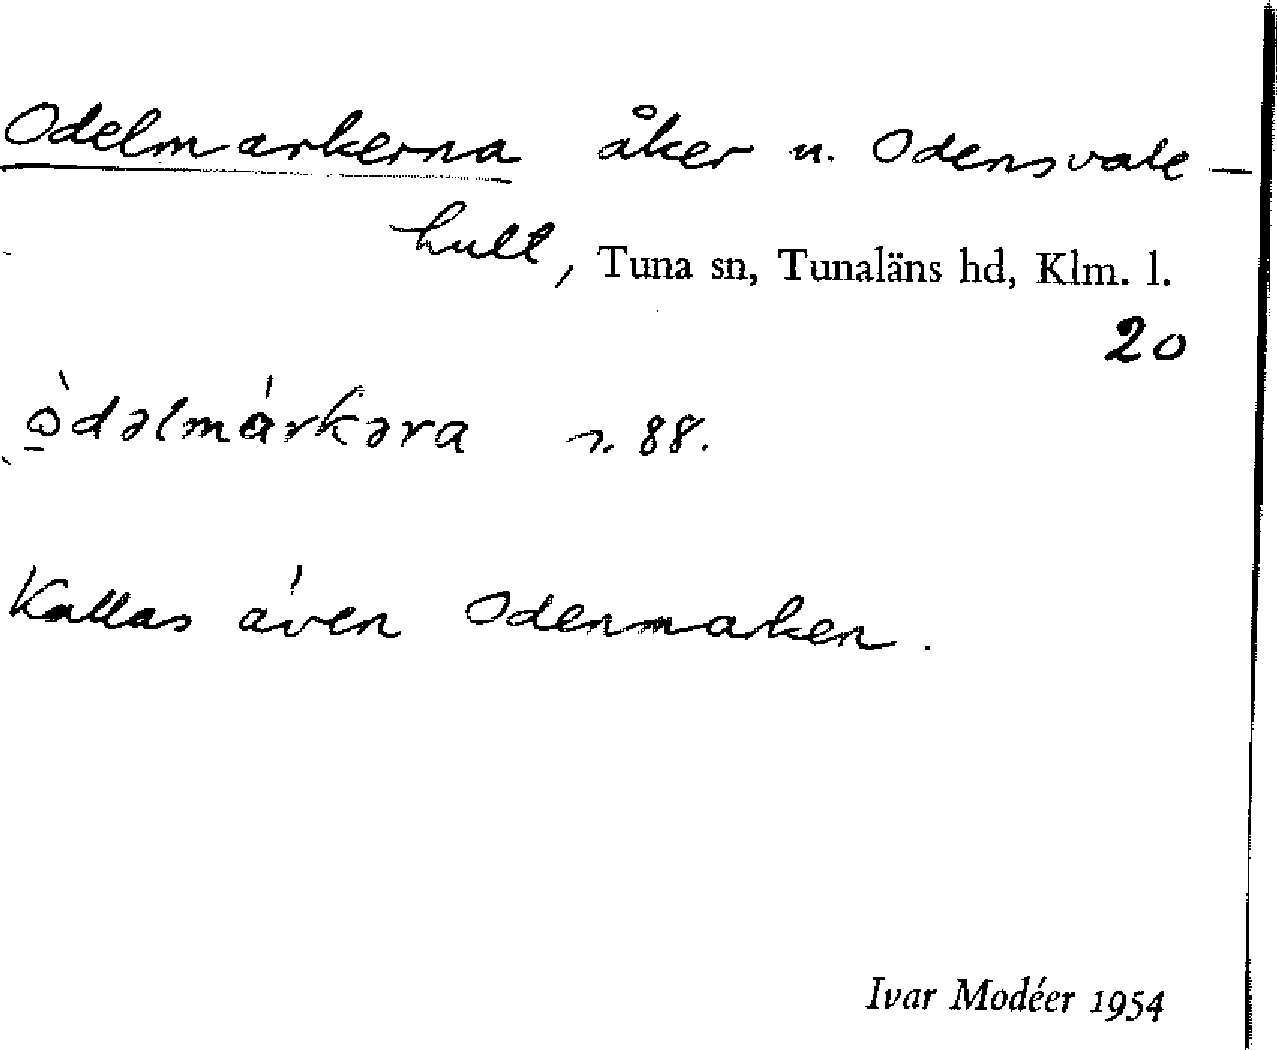 Odelmarkerna åker u. Odensvale-
hult, Tuna sn, Tunaläns hd, Klm. l.
20
òdəlmárkəra s. 88.
Kallas även Odenmarken.
Ivar Modéer 1954